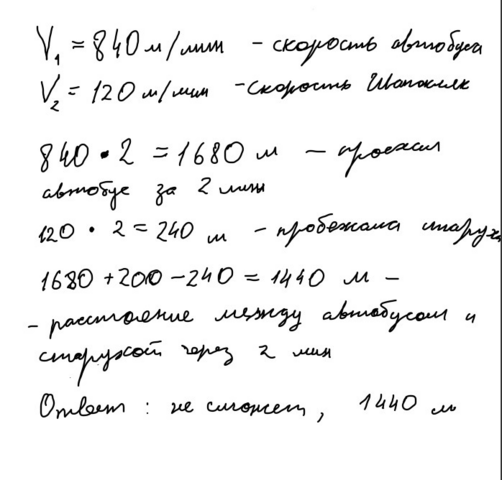 V₁ = 840 м/мин - скорость автобуса
V₂ = 120 м/мин - скорость Шапокляк
840 • 2 = 1680 м - проехал
автобус за 2 мин
120 • 2 = 240 м - пробежала старуха
1680 + 200 - 240 = 1440 м -
- расстояние между автобусом и
старухой через 2 мин
Ответ : не сможет, 1440 м